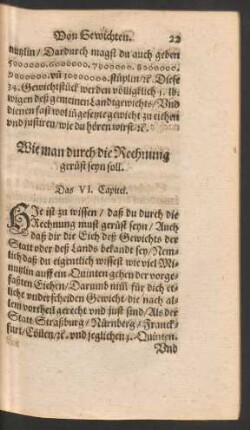 Von Gewichten. 22
nüplin / Dardurch magst du auch geben
5000000. 6000000. 7000000. 8000000.
9000000. vñ 10000000. stüplin /rc. Diese
34. Gewichtstück werden völligklich 1. lb.
wigen deß gemeinen Landtgewichts / Vnd
dienen fast wol in gesetzte gewicht zu eichen
vnd justiren / wie du hören wirst /rc.
Wie man durch die Rechnung
gerüst seyn soll.
Das VI. Capitel.
HIe ist zu wissen / daß du durch die
Rechnung must gerüst seyn / Auch
daß dir die Eich deß Gewichts der
Statt oder deß Lands bekandt sey / Nem-
lich daß du eigentlich wissest wie viel Mi-
nutlin auff ein Quinten gehen der vorge-
faßten Eichen / Darumb nim̃ für dich et-
liche vnderscheiden Gewicht / die nach al-
lem vortheil gerecht vnd just sind / Als der
Statt Straßburg / Nürnberg / Franck-
furt / Cöllen /rc. vnd jeglichen 3. Quinten.
Vnd